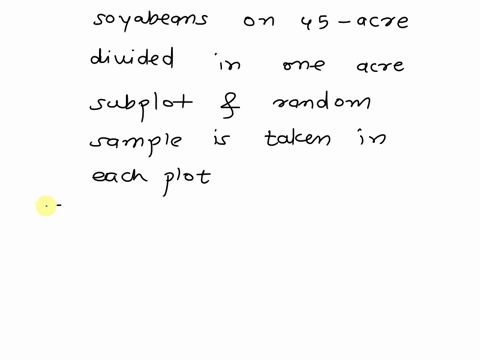 soyabeans on 45-acre
divided in one acre
subplot & random
sample is taken in
each plot